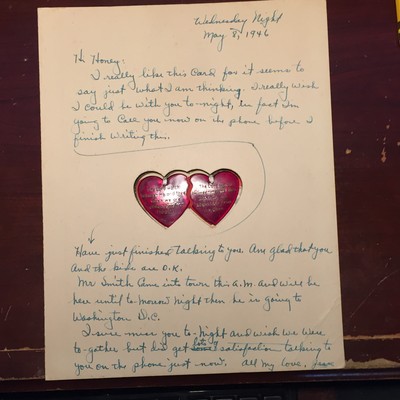 Wednesday Night
May 8, 1946
Hi Honey:
I really like this Card for it seems to
say just what I am thinking. I really wish
I could be with you to-night, in fact I'm
going to Call you now on the phone before I
finish writing this.
Have just finished talking to you. Am glad that you
and the kids are O.K.
Mr Smith Came into town this A.M. and will be
here until to-morrow night then he is going to
Washington D.C.
I sure miss you to-night and wish we were
to-gether but did get lots of satisfaction talking to
you on the phone just now. All my love,